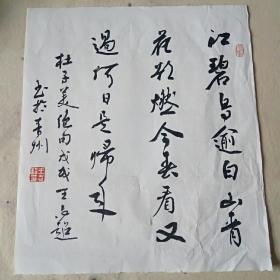 江碧鸟逾白山青
花欲燃今春看又
过何日是归年
杜子美绝句戊戌王志
书于青州